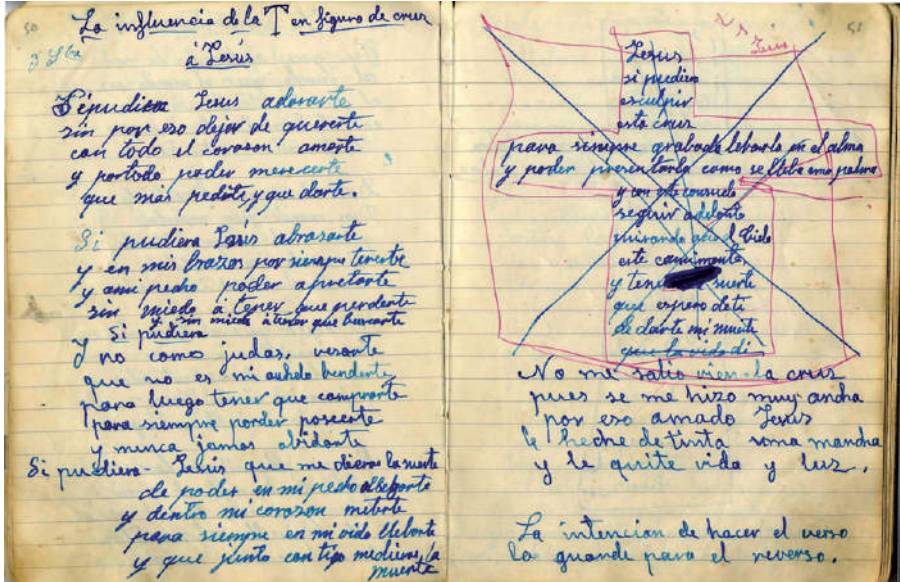 50
La influencia de la T en figura de cruz
á Jesús
Sépudiera Jesus adorarte
sin por eso dejar de quererte
con todo el corazon amarte
y portodo poder merecerte
que más pedirte, y que darte.
Si pudiera Jesús abrasarte
y en mis brazos por siempre tenerte
y ami pecho poder apretarte
sin miedo á tener que perderte
y sin miedo á tener que buscarte
Si pudiera
Y no como judas, vesarte
que no es mi anhelo benderte
para luego tener que comprarte
para siempre porder poseerte
y nunca jamas olbidarte
Si pudiera - Jesús que me dieras la suerte
de poder en mi pecho albegarte
y dentro mi corazon meterte
para siempre en mi vida llebarte
y que junto contigo medieras, la
muerte
51
Jesus
si pudiera
esculpir
esta cruz
para siempre grabada lebarla en el alma
y poder presentarla como se lleba una palma
y con este consuelo
seguir adelante
mirando acia l bida
este caminante,
y tener suerte
que espero deti
de darte mi muerte
que la vida di
No me salio vien la cruz
pues se me hizo muy ancha
por eso amado Jesus
le heche de tinta una mancha
y le quite vida y luz.
La intencion de hacer el verso
la guarde para el reverso.